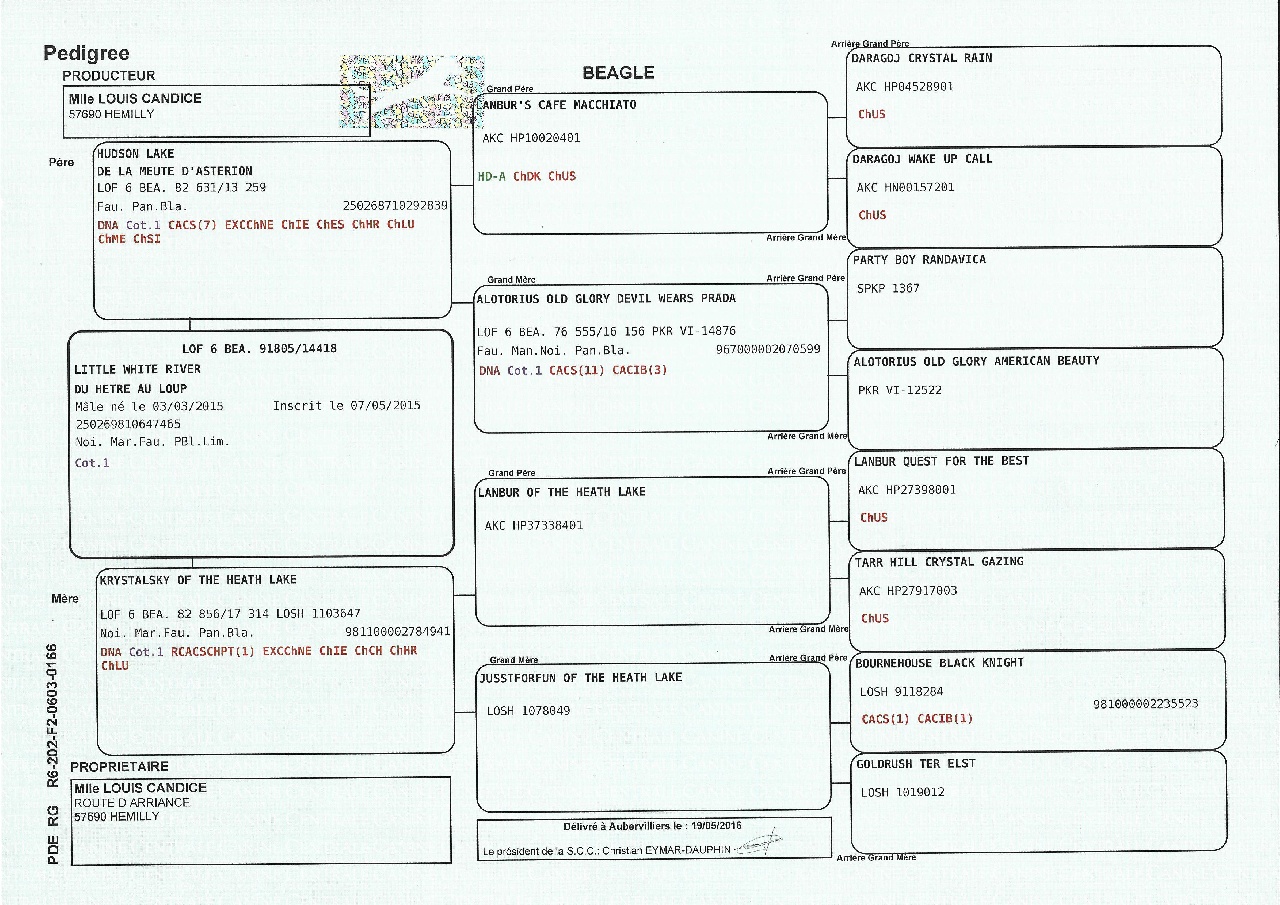 Pedigree
PRODUCTEUR
Mlle LOUIS CANDICE
57690 HEMILLY
BEAGLE
Père
HUDSON LAKE
DE LA MEUTE D'ASTERION
LOF 6 BEA. 82 631/13 259
Fau. Pan.Bla. 250268710292839
DNA Cot.1 CACS(7) EXCChNE ChIE ChES ChHR ChLU
ChME ChSI
LOF 6 BEA. 91805/14418
LITTLE WHITE RIVER
DU HETRE AU LOUP
Mâle né le 03/03/2015 Inscrit le 07/05/2015
250269810647465
Noi. Mar.Fau. PBl.Lim.
Cot.1
Mère
KRYSTALSKY OF THE HEATH LAKE
LOF 6 BEA. 82 856/17 314 LOSH 1103647
Noi. Mar.Fau. Pan.Bla. 981100002784941
DNA Cot.1 RCACSCHPT(1) EXCChNE ChIE ChCH ChHR
ChLU
PROPRIETAIRE
Mlle LOUIS CANDICE
ROUTE D ARRIANCE
57690 HEMILLY
PDE RG R6-202-F2-0603-0166
Grand Père
LANBUR'S CAFE MACCHIATO
AKC HP10020401
HD-A ChDK ChUS
Grand Mère
ALOTORIUS OLD GLORY DEVIL WEARS PRADA
LOF 6 BEA. 76 555/16 156 PKR VI-14876
Fau. Man.Noi. Pan.Bla. 967000002070599
DNA Cot.1 CACS(11) CACIB(3)
Grand Père
LANBUR OF THE HEATH LAKE
AKC HP37338401
Grand Mère
JUSSTFORFUN OF THE HEATH LAKE
LOSH 1078049
Délivré à Aubervilliers le : 19/05/2016
Le président de la S.C.C.: Christian EYMAR-DAUPHIN
Arrière Grand Père
DARAGOJ CRYSTAL RAIN
AKC HP04528901
ChUS
DARAGOJ WAKE UP CALL
AKC HN00157201
ChUS
Arrière Grand Mère
Arrière Grand Père
PARTY BOY RANDAVICA
SPKP 1367
ALOTORIUS OLD GLORY AMERICAN BEAUTY
PKR VI-12522
Arrière Grand Mère
Arrière Grand Père
LANBUR QUEST FOR THE BEST
AKC HP27398001
ChUS
TARR HILL CRYSTAL GAZING
AKC HP27917003
ChUS
Arrière Grand Mère
Arrière Grand Père
BOURNEHOUSE BLACK KNIGHT
LOSH 9118284
981000002235523
CACS(1) CACIB(1)
GOLDRUSH TER ELST
LOSH 1019012
Arrière Grand Mère